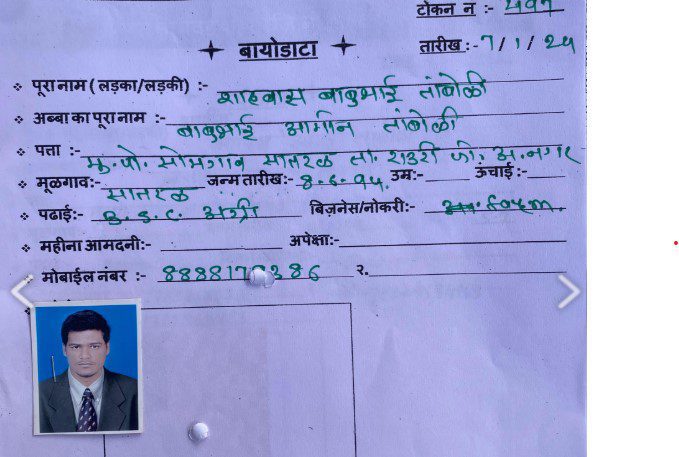 टोकन न :- 497
बायोडाटा
तारीख :- 7/1/24
पूरा नाम ( लड़का/लड़की) :- शाहबास बाबुभाई तांबोळी
अब्बा का पूरा नाम :- बाबुभाई आमीन तांबोळी
पत्ता :- मु.पो. सोमगाव सातरळ ता. राउरी जी. अ.नगर
मूळगाव:- सातरळ जन्म तारीख:- 8.6.94. उम्र:- ऊंचाई :-
पढाई:- B.S.C. अग्री बिज़नेस/नोकरी:- farm.
महीना आमदनी:- अपेक्षा:-
मोबाईल नंबर :- 8888170386 २.